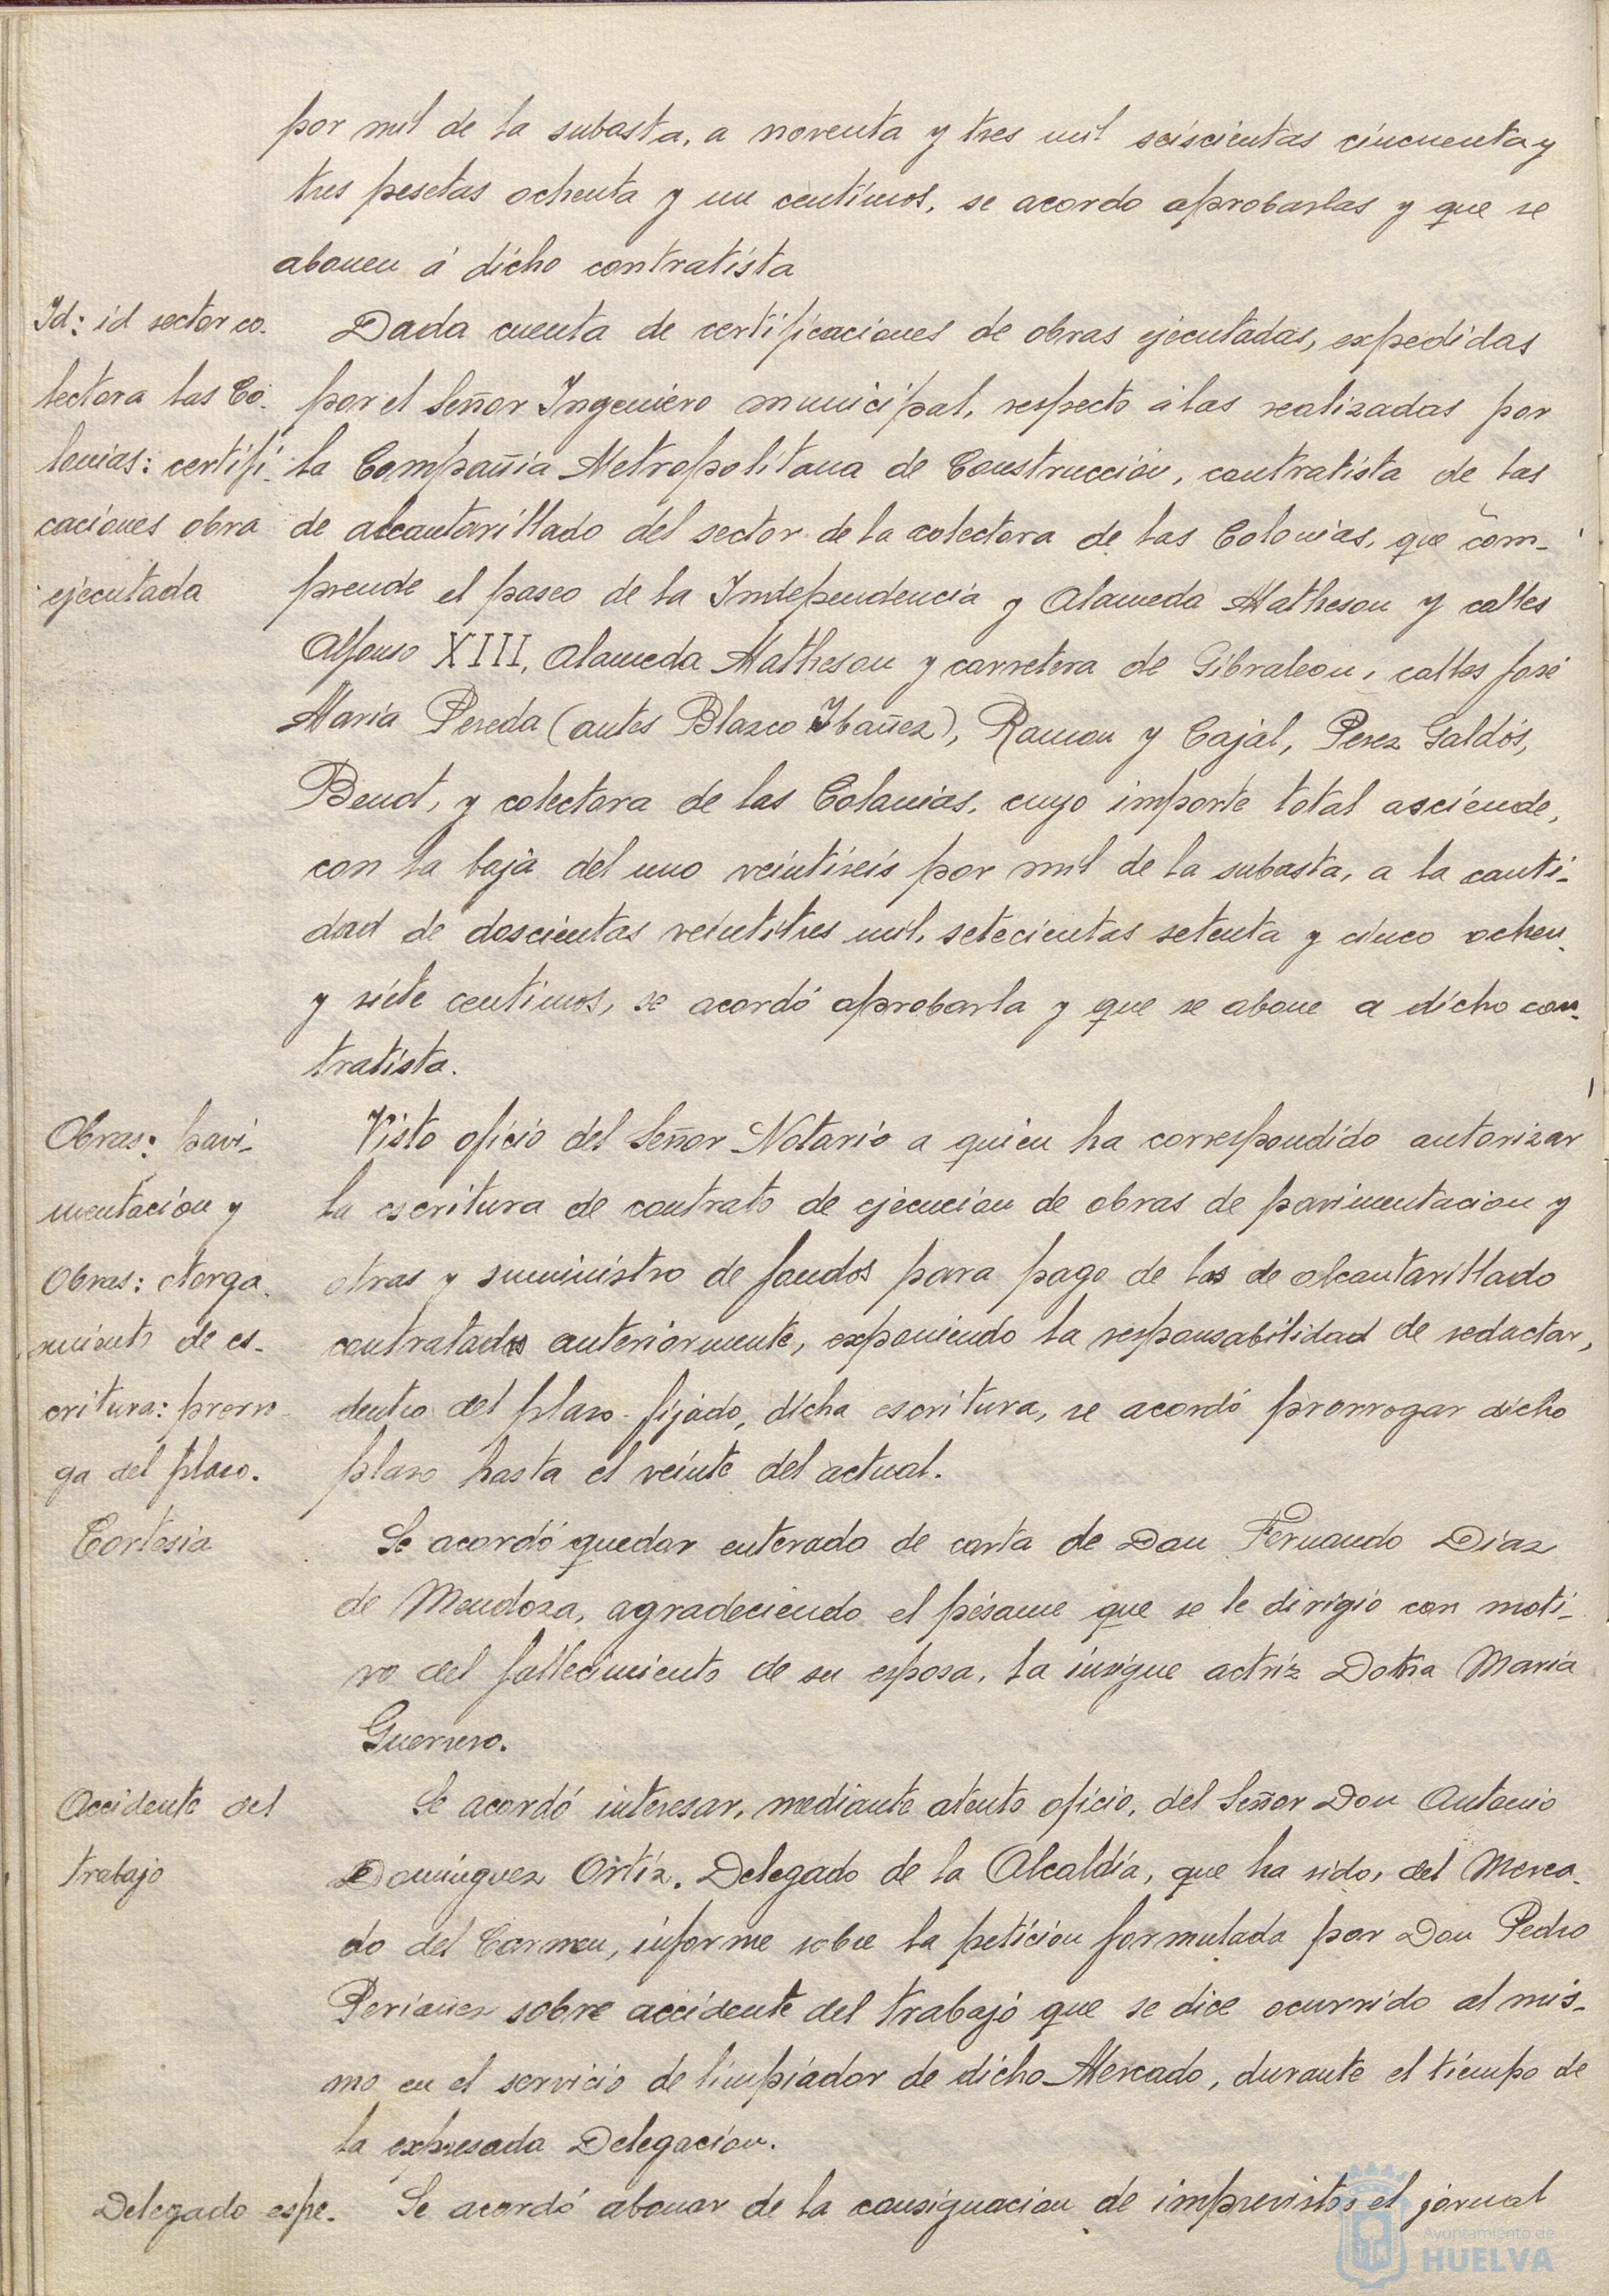 por mil de la subasta, a noventa y tres mil seiscientas cincuenta y
tres pesetas ochenta y un centimos, se acordo aprobarlas y que se
abonen á dicho contratista
Id: id sector co-
lectora las Co-
lonias: certifi-
caciones obra
ejecutada
Dada cuenta de certificaciones de obras ejecutadas, expedidas
por el Señor Ingeniero municipal, respecto a las realizadas por
la Compañia Metropolitana de Construcción, contratista de las
de alcantarillado del sector de la colectora de las Colonias, que com-
prende el paseo de la Independencia y Alameda Matheson y calles
Alfonso XIII, Alameda Matheson y carretera de Gibraleon, calles José
Maria Pereda (antes Blazco Ibañez), Ramon y Cajal, Perez Galdós,
Benot, y colectora de las Colonias, cuyo importe total asciende,
con la baja del uno veintiseis por mil de la subasta, a la canti-
dad de doscientas veintitres mil, setecientas setenta y cinco ochen-
y siete centimos, se acordó aprobarla y que se abone a dicho con-
tratista.
Obras: pavi-
mentación y
Obras: otorga-
miento de es-
critura: prorro
ga del plazo.
Visto oficio del Señor Notario a quien ha correspondido autorizar
la escritura de contrato de ejecucion de obras de pavimentacion y
otras y suministro de fondos para pago de las de alcantarillado
contratados anteriormente, exponiendo la responsabilidad de redactar,
dentro del plazo fijado, dicha escritura, se acordó prorrogar dicho
plazo hasta el veinte del actual.
Cortesia
Se acordó quedar enterado de carta de Don Fernando Diaz
de Mendoza, agradeciendo el pésame que se le dirigio con moti-
vo del fallecimiento de su esposa, la insigne actriz Doña Maria
Guerrero.
Accidente del
trabajo
Se acordó interesar, mediante atento oficio, del Señor Don Antonio
Dominguez Ortiz. Delegado de la Alcaldía, que ha sido, del Merca-
do del Carmen, informe sobre la petición formulada por Don Pedro
Periañez sobre accidente del trabajo que se dice ocurrido al mis-
mo en el servicio de limpiador de dicho Mercado, durante el tiempo de
la expresada Delegacion.
Delegado espe-
Se acordó abonar de la consignacion de imprevistos el jornal
Ayuntamiento de
HUELVA